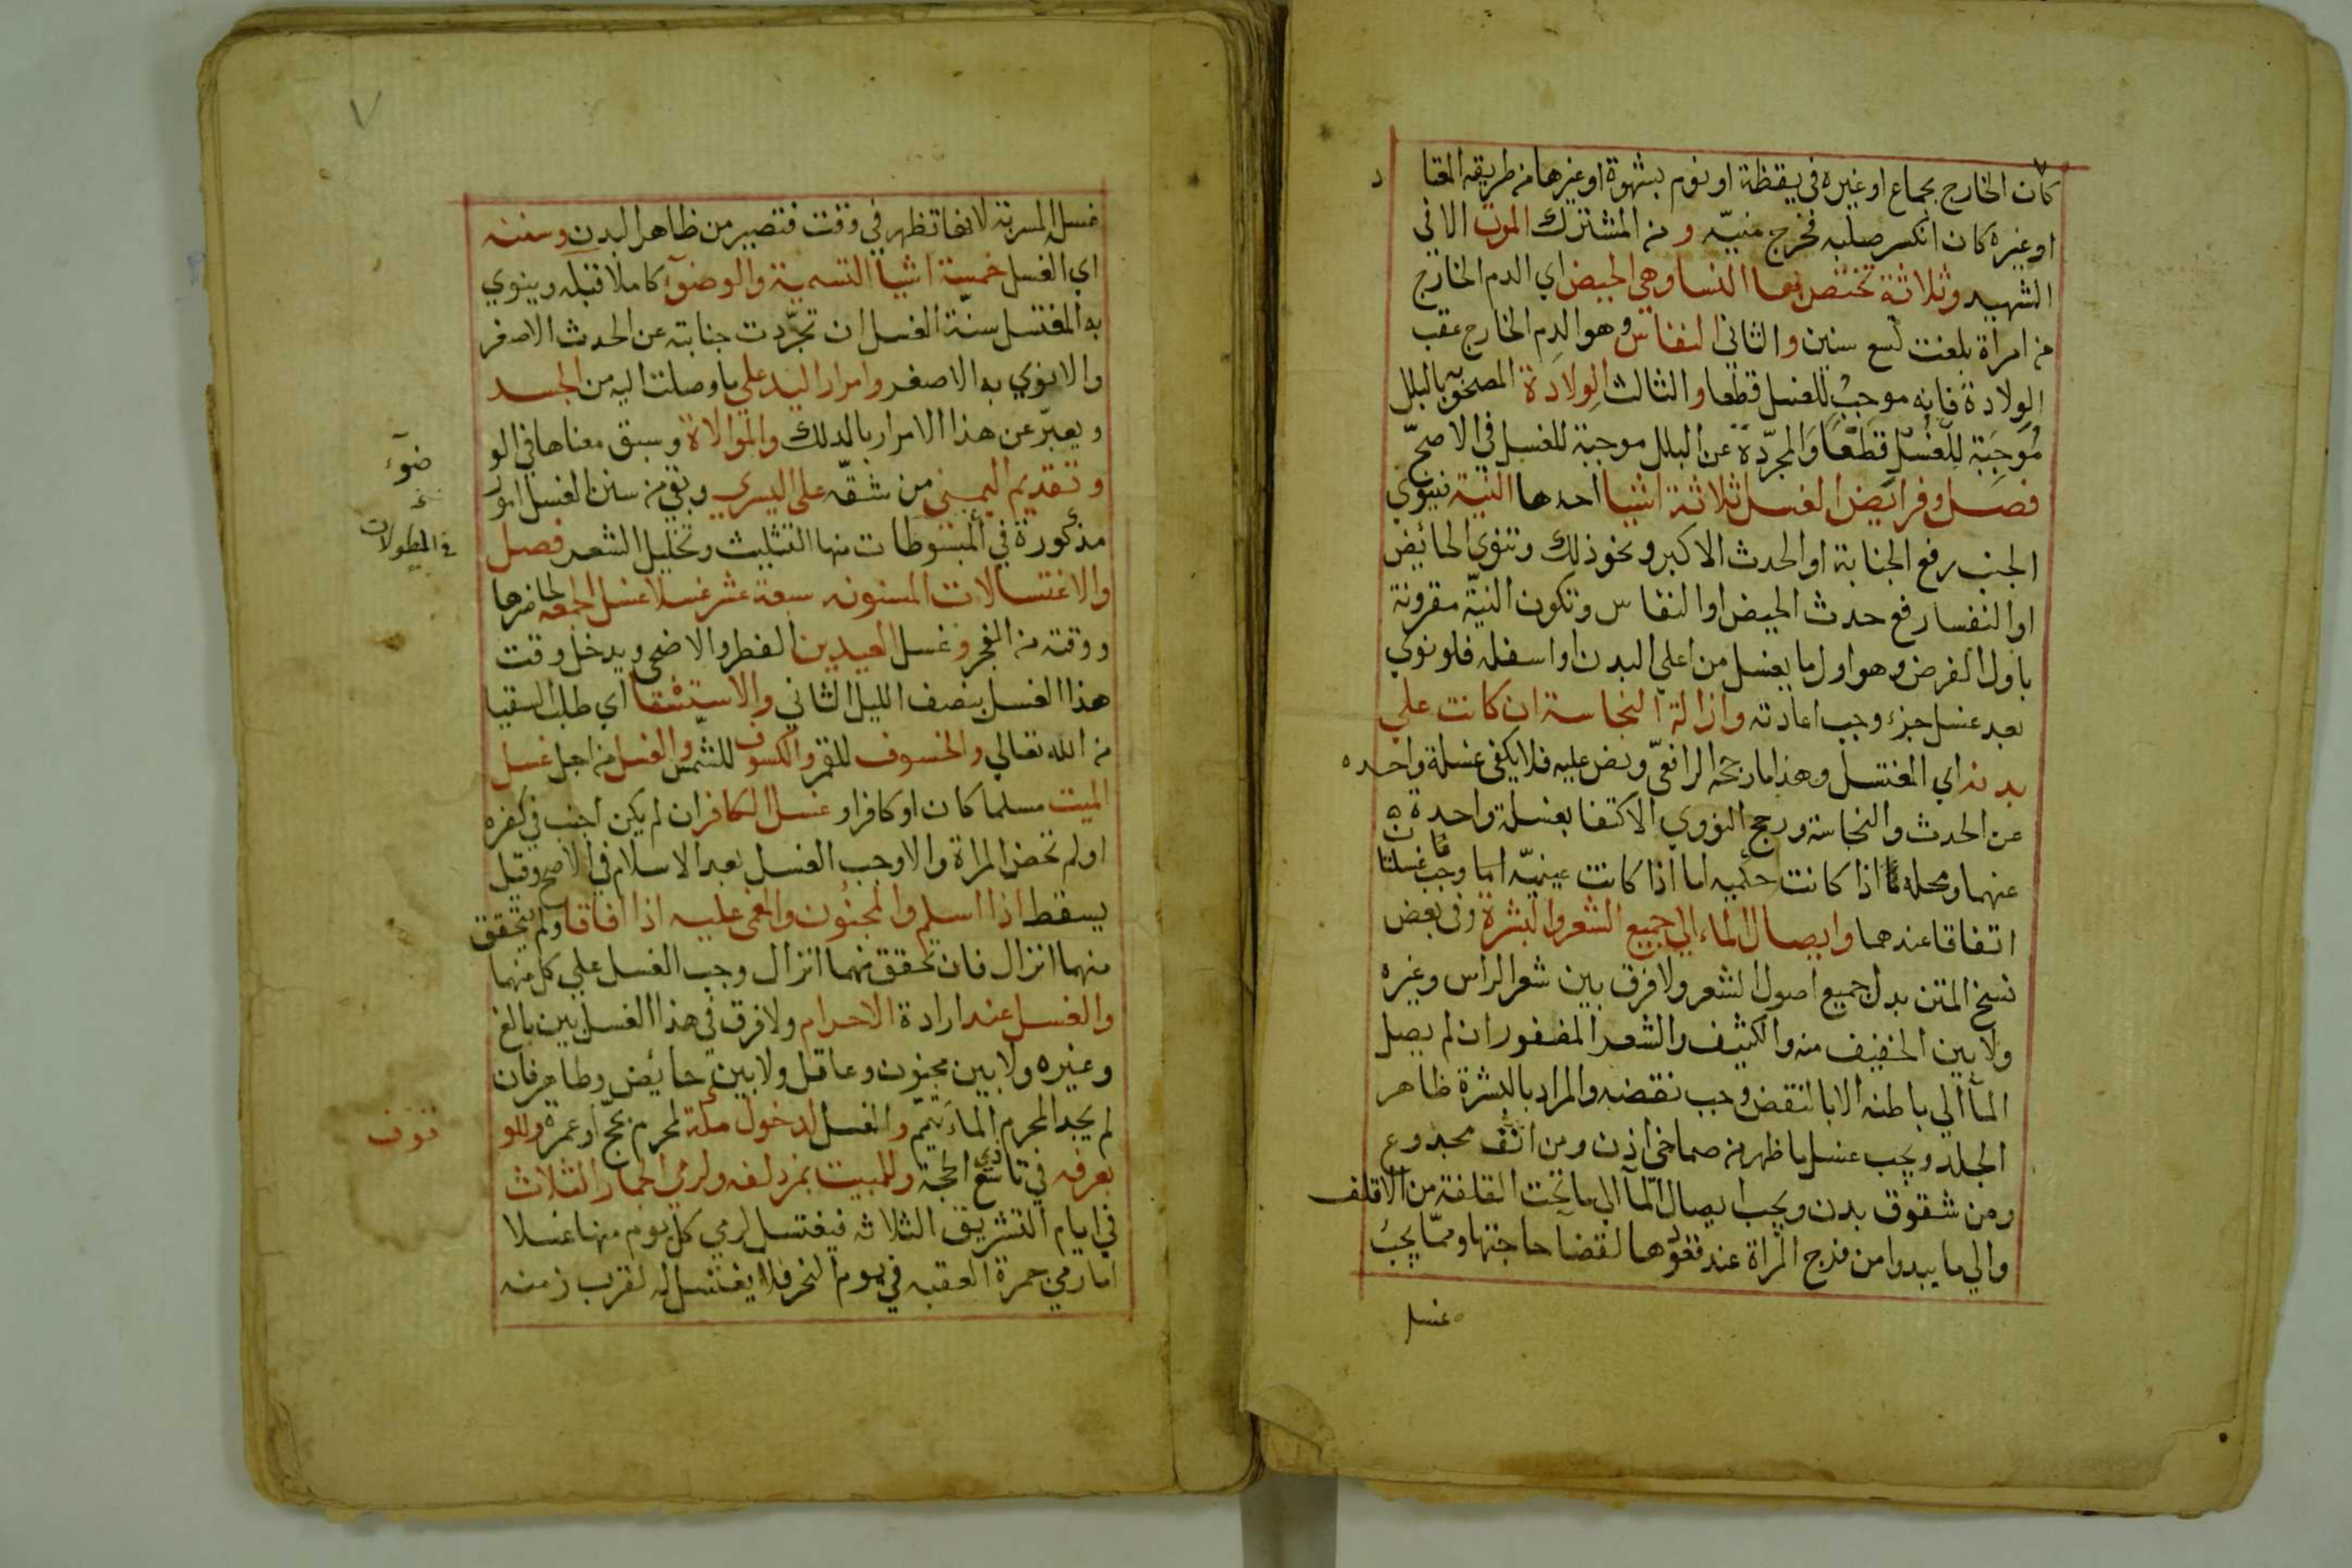 كان الخارج بجماع او غيره في يقظة او نوم بشهوة او غيرها من طريقه المعتاد
او غيره كان انكسر صلبه فخرج منيه و من المشترك الموت الا في
الشهيد وثلاثة تختص بها النسا وهي الحيض اي الدم الخارج
من امراة بلغت تسع سنين والثاني النفاس وهو الدم الخارج عقب
الولادة فانه موجب للغسل قطعا والثالث الولادة المصحوبة بالبلل
موجبة للغسل قطعا والمجردة عن البلل موجبة للغسل في الاصح
فصل وفرايض الغسل ثلاثة اشيا احدها النية فينوي
الجنب رفع الجنابة او الحدث الاكبر ونحو ذلك وتنوي الحائض
او النفسا رفع حدث الحيض او النفاس وتكون النية مقرونة
باول الفرض وهو اول ما يغسل من اعلي البدن او اسفله فلو نوي
بعد غسل جزء وجب اعادته وازالة النجاسة ان كانت علي
بدنه اي المغتسل وهذا ما رجحه الرافعي ونص عليه فلا يكفي غسلة واحده
عن الحدث والنجاسة ورجح النووي الاكتفا بغسلة واحدة
عنهما ومحله ما اذا كانت حكميه اما اذا كانت عينية وجب غسلتان
اتفاقا عندهما وايصال الماء الي جميع الشعر والبشرة وفي بعض
نسخ المتن بدل جميع اصول الشعر ولا فرق بين شعر الراس وغيره
ولا بين الخفيف منه والكثيف والشعر المضفور ان لم يصل
المآ الي باطنه الا بالنقض وجب نقضه والمراد بالبشرة ظاهر
الجلد ويجب غسل ما ظهر من صماخي اذن ومن انف مجدوع
ومن شقوق بدن ويجب ايصال المآ الي ما تحت القلفة من الاقلف
والي ما يبدوا من فرج المراة عند قعودها لقضآ حاجتها ومما يجب
غسل
٧
غسل المسربة لانها تظهر في وقت فتصير من ظاهر البدن وسننه
اي الغسل خمسة اشيا التسمية والوضوٓء كاملا قبله وينوي
به المغتسل سنة الغسل ان تجردت جنابته عن الحدث الاصغر
والا نوي به الاصغر وامرار اليد علي ما وصلت اليه من الجسد
ويعبر عن هذا الامرار بالدلك والموالاة وسبق معناها في الو
ضوٓء
وتقديم اليمني من شقه علي اليسري وبقي من سنن الغسل امور
مذكورة في المبسوطات منها التثليث وتخليل الشعر فصل
في المطولات
والاغتسالات المسنونه سبعة عشر غسلا غسل الجمعه لحاضرها
ووقته من الفجر وغسل العيدين الفطر والاضحي ويدخل وقت
هذا الغسل بنصف الليل الثاني والاستسقا اي طلب السقيا
من الله تعالي والخسوف للقمر والكسوف للشمس والغسل من اجل غسل
الميت مسلما كان او كافرا وغسل الكافر ان لم يكن اجنب في كفره
او لم تحض المراة والا وجب الغسل بعد الاسلام في الاصح وقيل
يسقط اذا اسلم والمجنون والمغمي عليه اذا افاقا ولم يتحقق
منهما انزال فان تحقق منهما انزال وجب الغسل علي كل منهما
والغسل عند ارادة الاحرام ولا فرق في هذا الغسل بين بالغ
وغيره ولا بين مجنون وعاقل ولا بين حائض وطاهر فان
لم يجد المحرم الماء تيمم والغسل لدخول مكة لمحرم بحج او عمرة وللو
قوف
بعرفه في تاسع ذي الحجة وللمبيت بمزدلفه ولرمي الجمار الثلاث
في ايام التشريق الثلاثه فيغتسل لرمي كل يوم منها غسلا
اما رمي جمرة العقبه في يوم النحر فلا يغتسل له لقرب زمنه